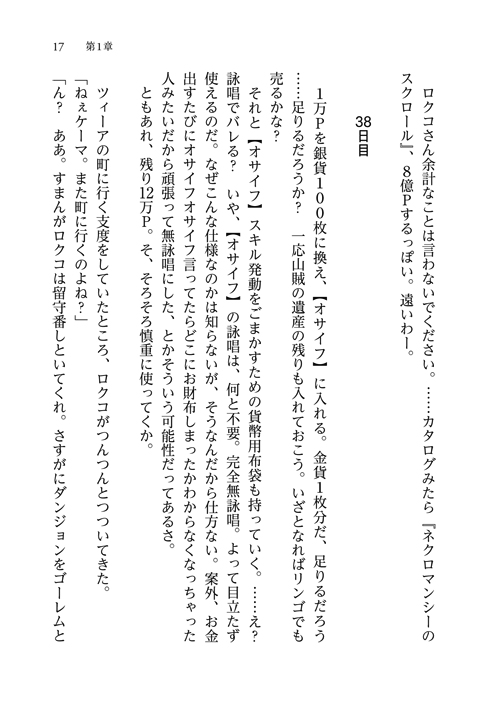 17　第1章
ロクコさん余計なことは言わないでください。……カタログみたら『ネクロマンシーの
スクロール』、8億Pするっぽい。遠いわー。
38日目
1万Pを銀貨100枚に換え、【オサイフ】に入れる。金貨1枚分だ、足りるだろう
……足りるだろうか？　一応山賊の遺産の残りも入れておこう。いざとなればリンゴでも
売るかな？
それと【オサイフ】スキル発動をごまかすための貨幣用布袋も持っていく。……え？
詠唱でバレる？　いや、【オサイフ】の詠唱は、何と不要。完全無詠唱。よって目立たず
使えるのだ。なぜこんな仕様なのかは知らないが、そうなんだから仕方ない。案外、お金
出すたびにオサイフオサイフ言ってたらどこにお財布しまったかわからなくなっちゃった
人みたいだから頑張って無詠唱にした、とかそういう可能性だってあるさ。
ともあれ、残り12万P。そ、そろそろ慎重に使ってくか。
ツィーアの町に行く支度をしていたところ、ロクコがつんつんとつついてきた。
「ねぇケーマ。また町に行くのよね？」
「ん？　ああ。すまんがロクコは留守番しといてくれ。さすがにダンジョンをゴーレムと